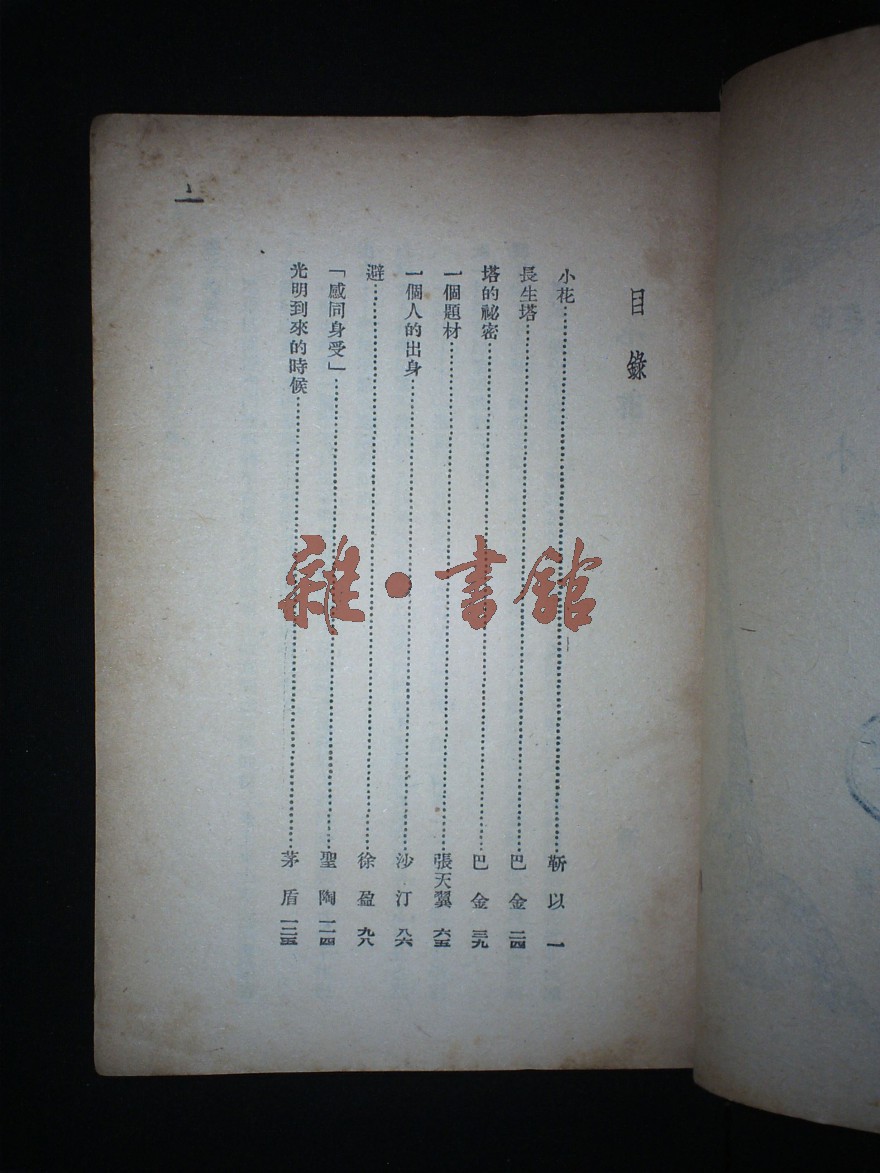 目錄
小花……靳以 一
長生塔……巴金 二四
塔的祕密……巴金 三九
一個題材……張天翼 六五
一個人的出身……沙汀 八六
避……徐盈 九八
「感同身受」……聖陶 一一四
光明到來的時候……茅盾 一二五
雜·書館